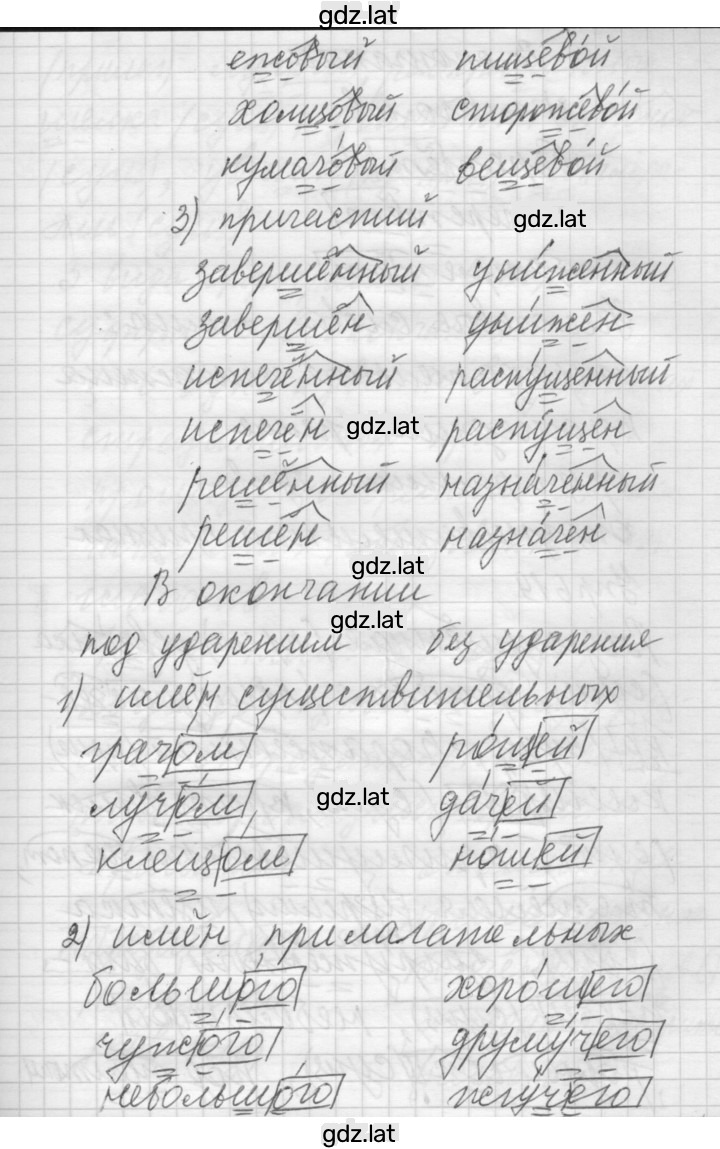 gdz.lat
ежовый пищевой
холщовый сторожевой
кумачовый вещевой
3) причастий gdz.lat
завершённый униженный
завершён унижен
испечённый распущенный
испечён gdz.lat распущен
решённый назначенный
решён назначен
gdz.lat
В окончании
gdz.lat
под ударением без ударения
1) имён существительных
грачом рощей
лучом gdz.lat дачей
клещом ношей
2) имён прилагательных
большого хорошего
чужого дремучего
небольшого жгучего
gdz.lat